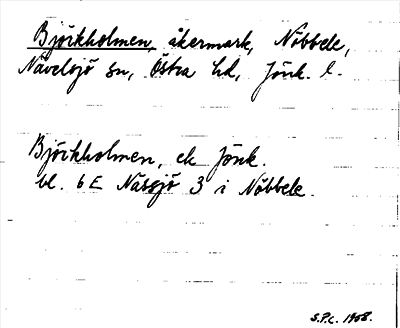 Björkholmen, åkermark, Nöbbele,
Nävelsjö sn, Östra hd, Jönk. l.
Björkholmen, ek Jönk.
bl. 6 E Nässjö 3 i Nöbbele.
S.P.C. 1968.